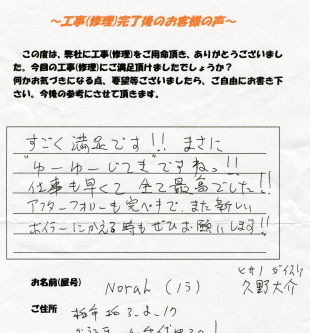 ～工事(修理)完了後のお客様の声～
この度は、弊社に工事(修理)をご用命頂き、ありがとうございまし
た。今回の工事(修理)にご満足頂けましたでしょうか？
何かお気づきになる点、要望等ございましたら、ご自由にお書き下
さい。今後の参考にさせて頂きます。
すごく満足です!! まさに
"ゆーゆーじてき"ですねっ!!
仕事も早くて全て最高でした!!
アフターフォローも完ペキで、また新しい
ボイラーにかえる時もぜひお願いします!!
お名前(屋号) Norah (15)
ヒサノ ダイスケ
久野大介
ご住所